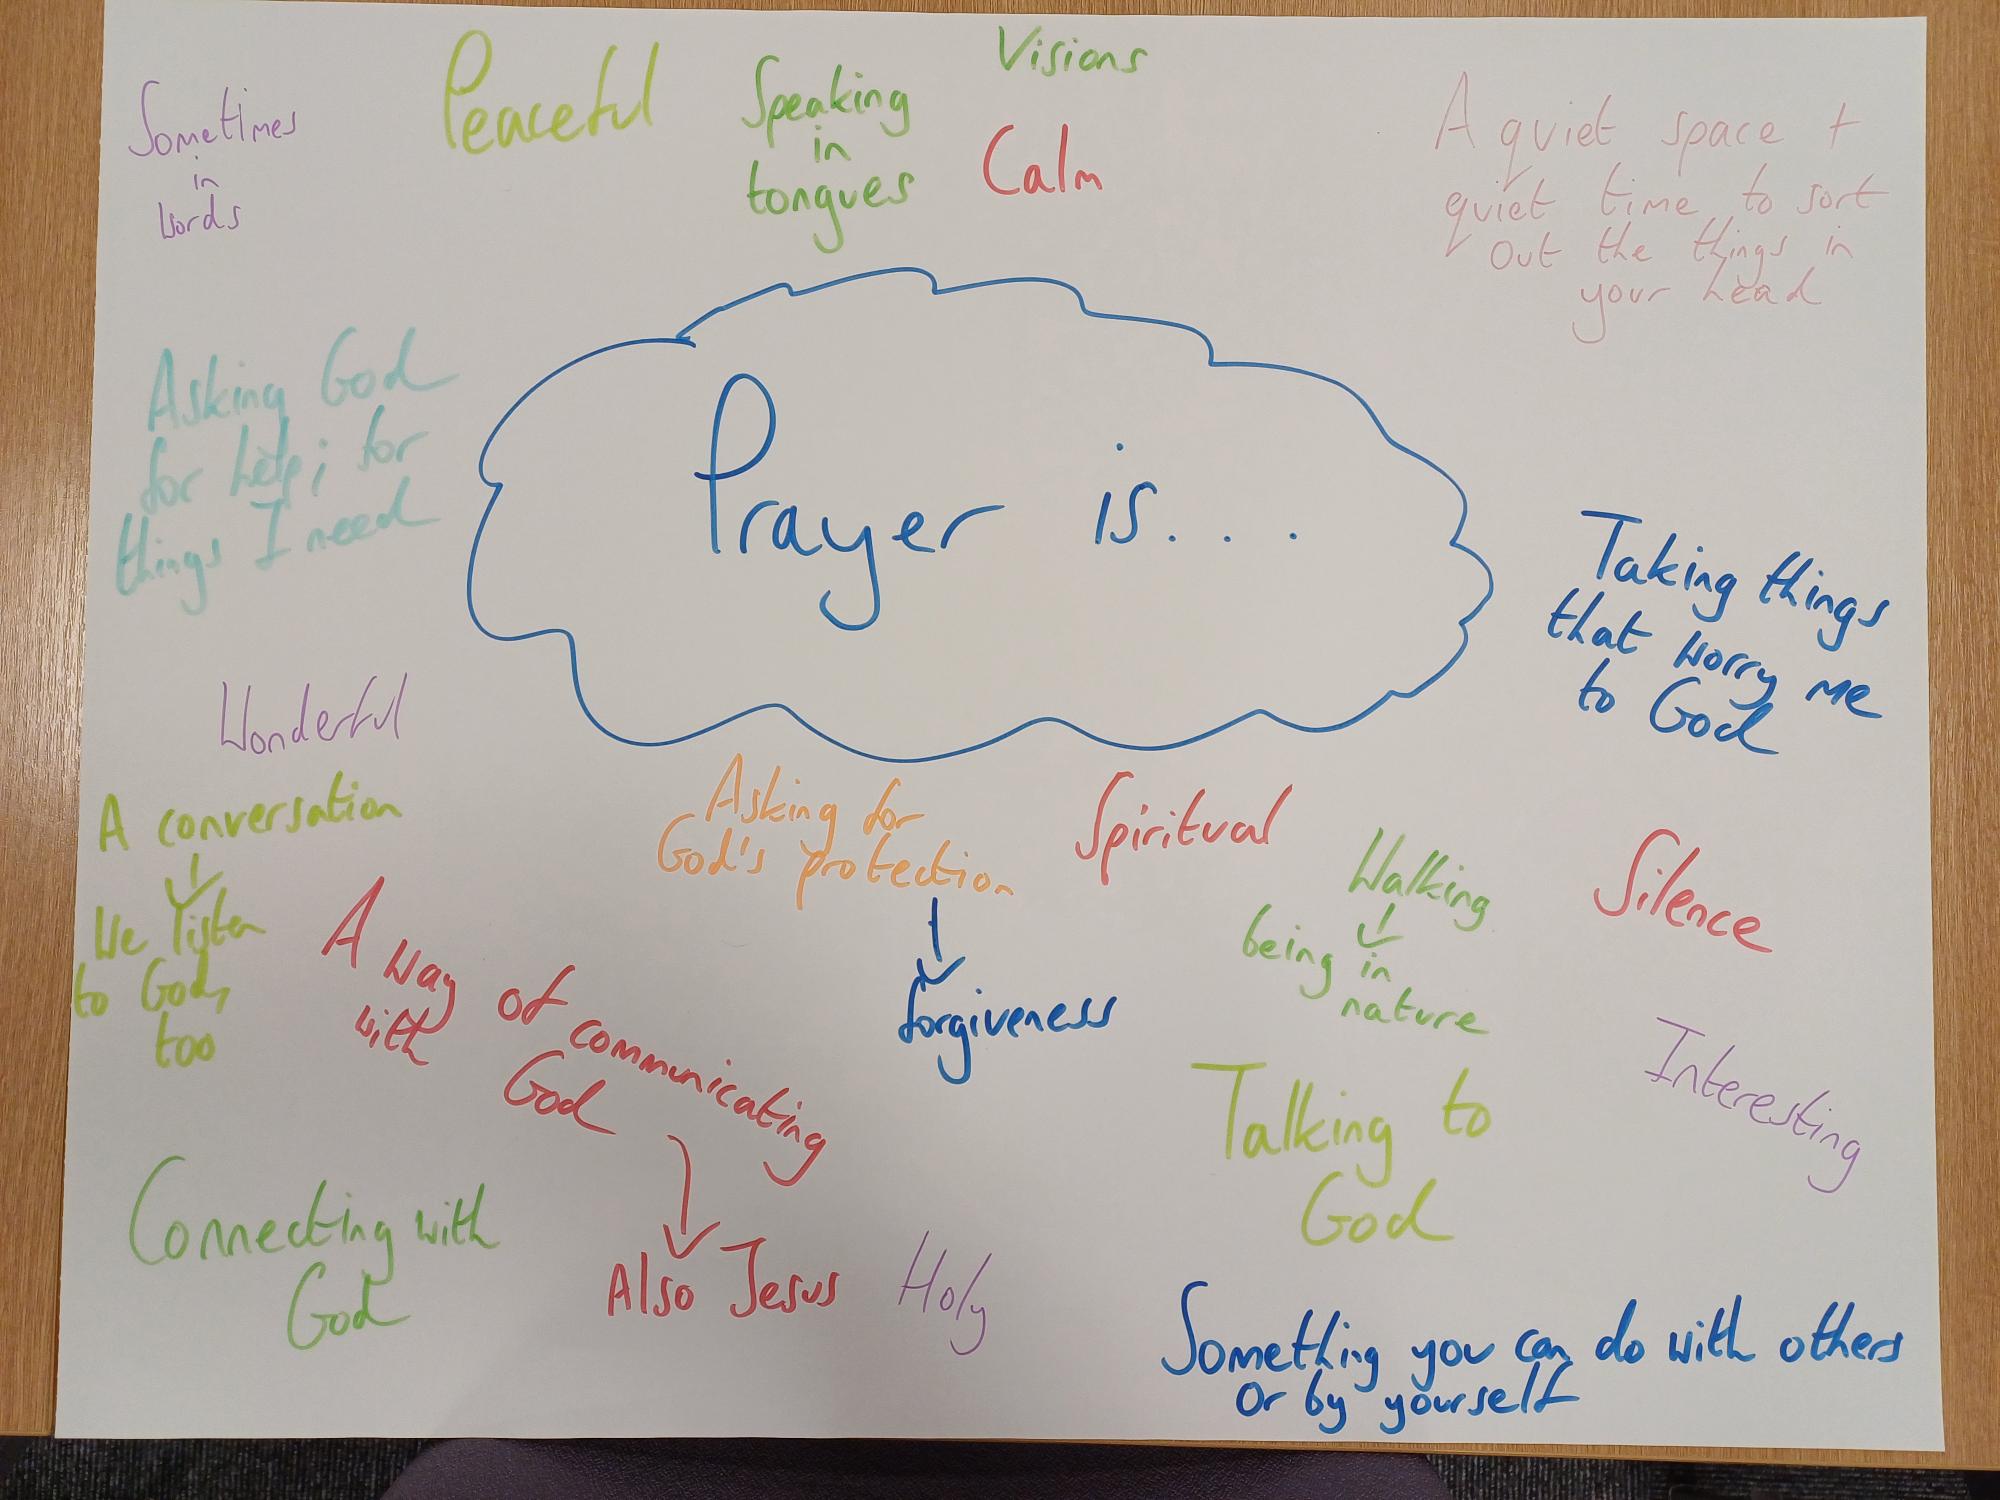 Sometimes
in
words
Peaceful
Speaking
in
tongues
Visions
Calm
A quiet space +
quiet time to sort
out the things in
your head
Asking God
for help; for
things I need
Prayer is...
Taking things
that worry me
to God
Wonderful
A conversation
We listen
to God,
too
Asking for
God's protection
forgiveness
Spiritual
Walking
being in
nature
Silence
A way of communicating
with God
Also Jesus
Talking to
God
Interesting
Connecting with
God
Holy
Something you can do with others
or by yourself